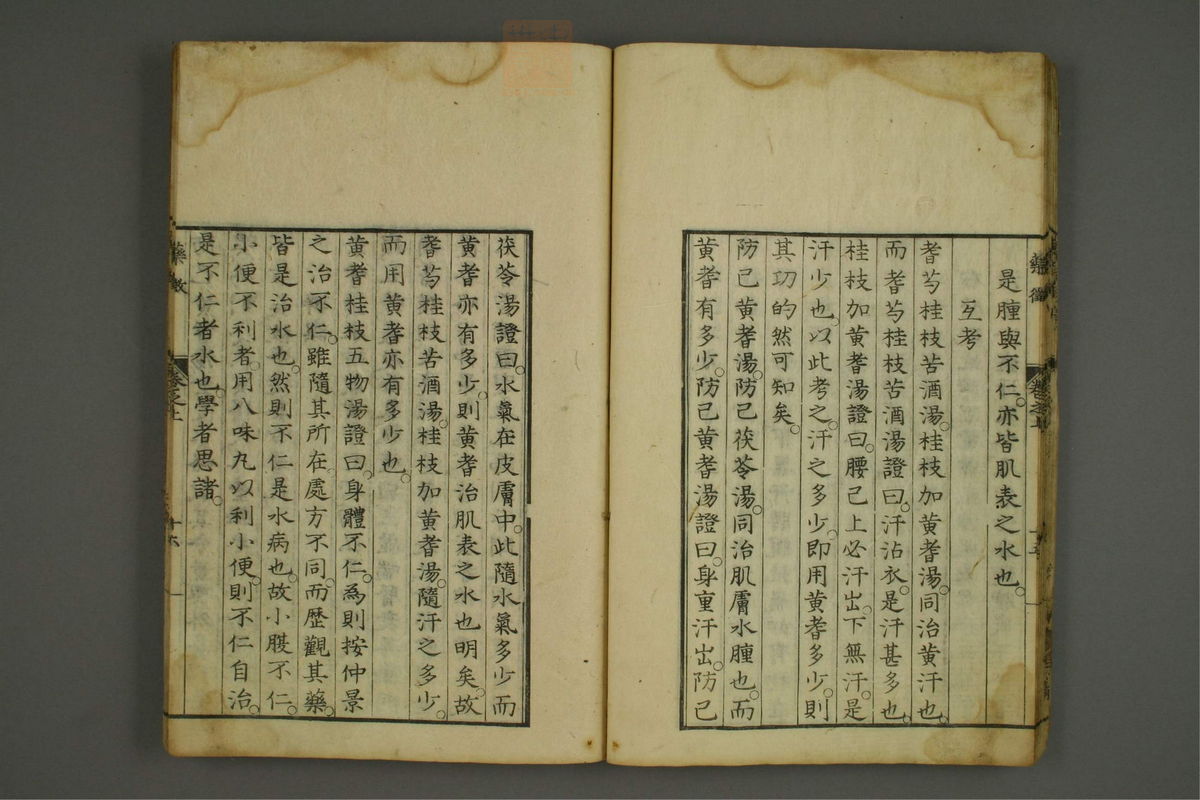 是腫與不仁。亦皆肌表之水也。
互考
耆芍桂枝苦酒湯。桂枝加黃耆湯。同治黃汗也。
而耆芍桂枝苦酒湯證曰。汗沾衣。是汗甚多也。
桂枝加黃耆湯證曰。腰已上必汗出。下無汗。是
汗少也。以此考之。汗之多少。即用黃耆多少。則
其功的然可知矣。
防已黃耆湯。防已茯苓湯。同治肌膚水腫也。而
黃耆有多少。防已黃耆湯證曰。身重汗出。防已
茯苓湯證曰。水氣在皮膚中。此隨水氣多少而
黃耆亦有多少。則黃耆治肌表之水也明矣。故
耆芍桂枝苦酒湯。桂枝加黃耆湯。隨汗之多少。
而用黃耆亦有多少也。
黃耆桂枝五物湯證曰。身體不仁。為則按仲景
之治不仁。雖隨其所在。處方不同。而歷觀其藥。
皆是治水也。然則不仁是水病也。故小腹不仁。
小便不利者。用八味丸以利小便。則不仁自治。
是不仁者水也。學者思諸。
藥徵
卷之上
十六